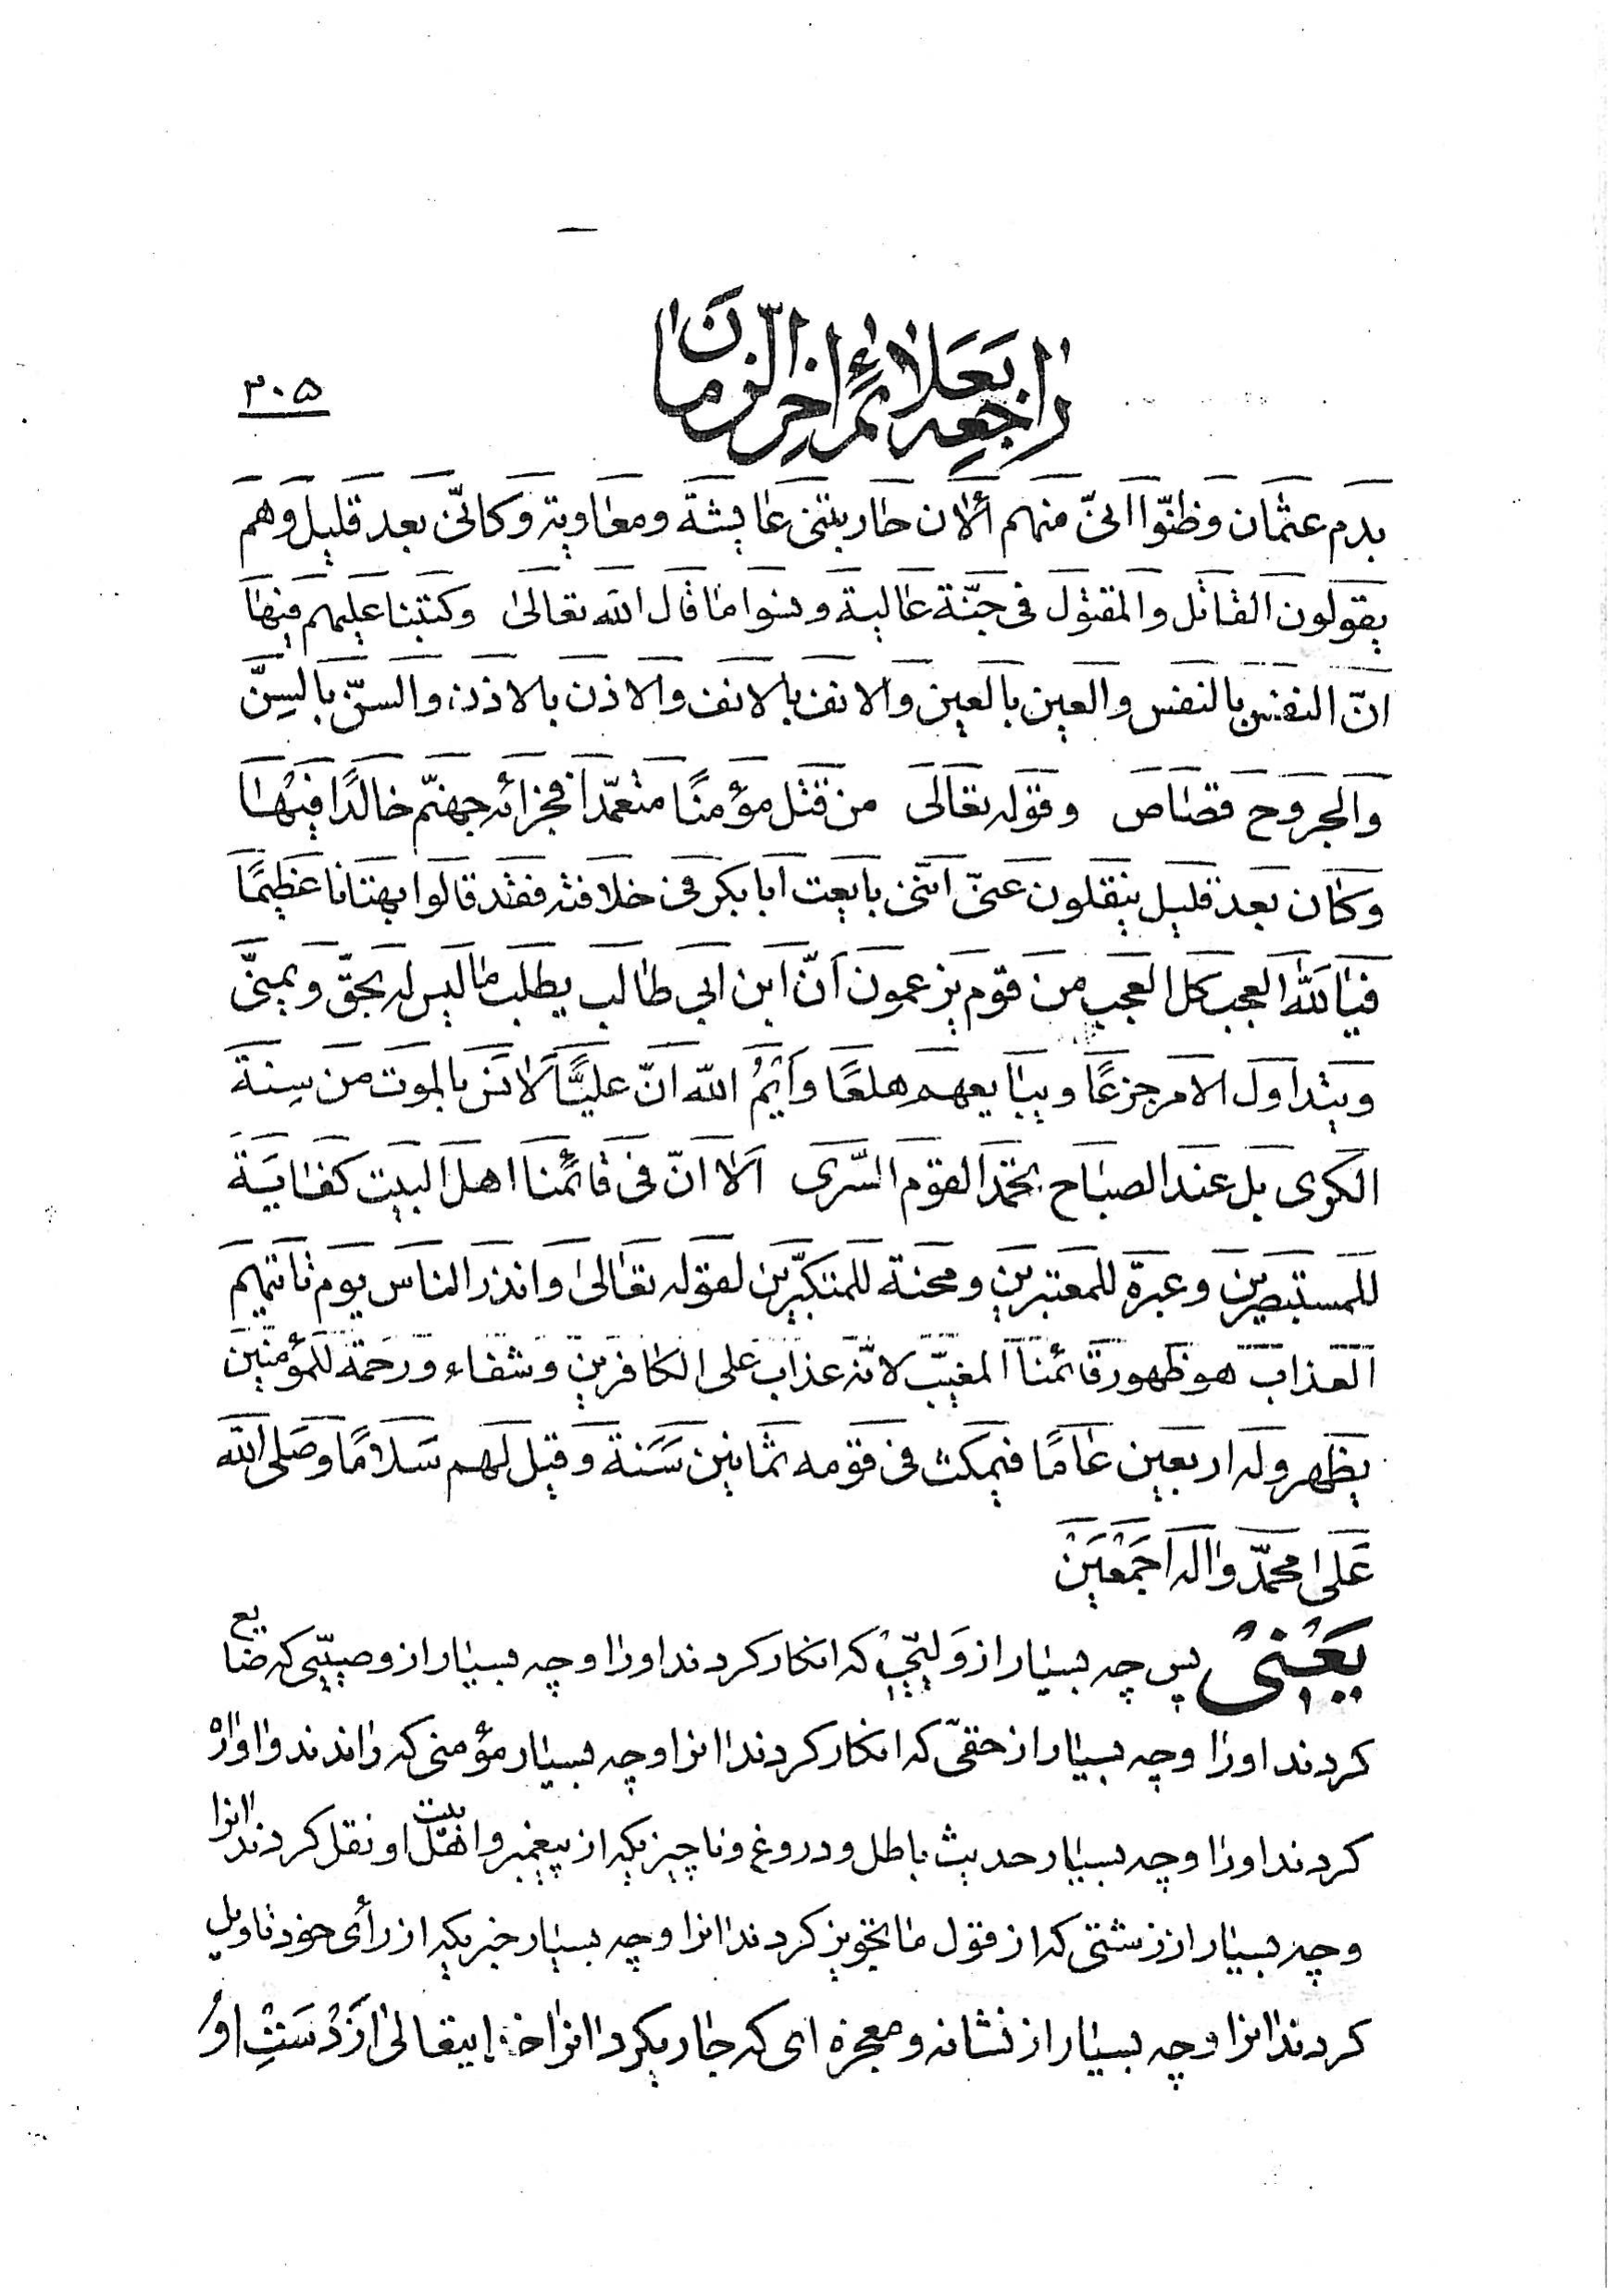 راجعه بعلائم اخر الزمان
۳۰۵
بدم عثمان و ظنّوا انّی منهم ألان حاربتنی عایشة و معاویة و کانّی بعد قلیل و هم
یقولون القاتل و المقتول فی جنّة عالیة و نسوا ما قال الله تعالی و کتبنا علیهم فیها
انّ النفس بالنفس و العین بالعین و الانف بالانف و الاذن بالاذن و السنّ بالسِنّ
و الجروح قصاص و قوله تعالی من قتل مؤمنًا متعمّدًا فجزائه جهنّم خالدًا فیها
و کان بعد قلیل ینقلون عنّی انّنی بایعت ابا بکر فی خلافته فقد قالوا بهتانا عظیمًا
فیا لله العجب کل العجب من قوم یزعمون أنّ ابن ابی طالب یطلب ما لیس له بحقّ و یمینّی
و یتداول الامر جزعًا و یبایعهم هلعًا و أیْمُ الله انّ علیًّا لانس بالموت من سِنة
الکری بل عند الصباح یحمد القوم السّری ألا انّ فی قائمنا اهل البیت کفایة
للمستبصرین و عبرة للمعتبرین و محنة للمتکبّرین لقوله تعالی و انذر الناس یوم تاتیهم
العذاب هو ظهور قائمنا المغیّب لانّه عذاب علی الکافرین و شفاء و رحمة للمؤمنین
یظهر و له اربعین عامًا فیمکث فی قومه ثمانین سَنة و قیل لهم سَلامًا و صَلی الله
عَلی محمّد و اله اجمعین
یَعْنی پس چه بسیار از وَلیّی که انکار کردند او را و چه بسیار از وصیّی که ضایع
کردند او را و چه بسیار از حقّی که انکار کردند انرا و چه بسیار مؤمنی که راندند و اواره
کردند او را و چه بسیار حدیث باطل و دروغ و ناچیزیکه از پیغمبر و اهل بیت او نقل کردند انرا
و چه بسیار از زشتی که از قول ما تجویز کردند انرا و چه بسیار خبریکه از رأی خود تاویل
کردند انرا و چه بسیار از نشانه و معجزه ای که جاریکرد انرا خدایتعالی از دَسْتِ او